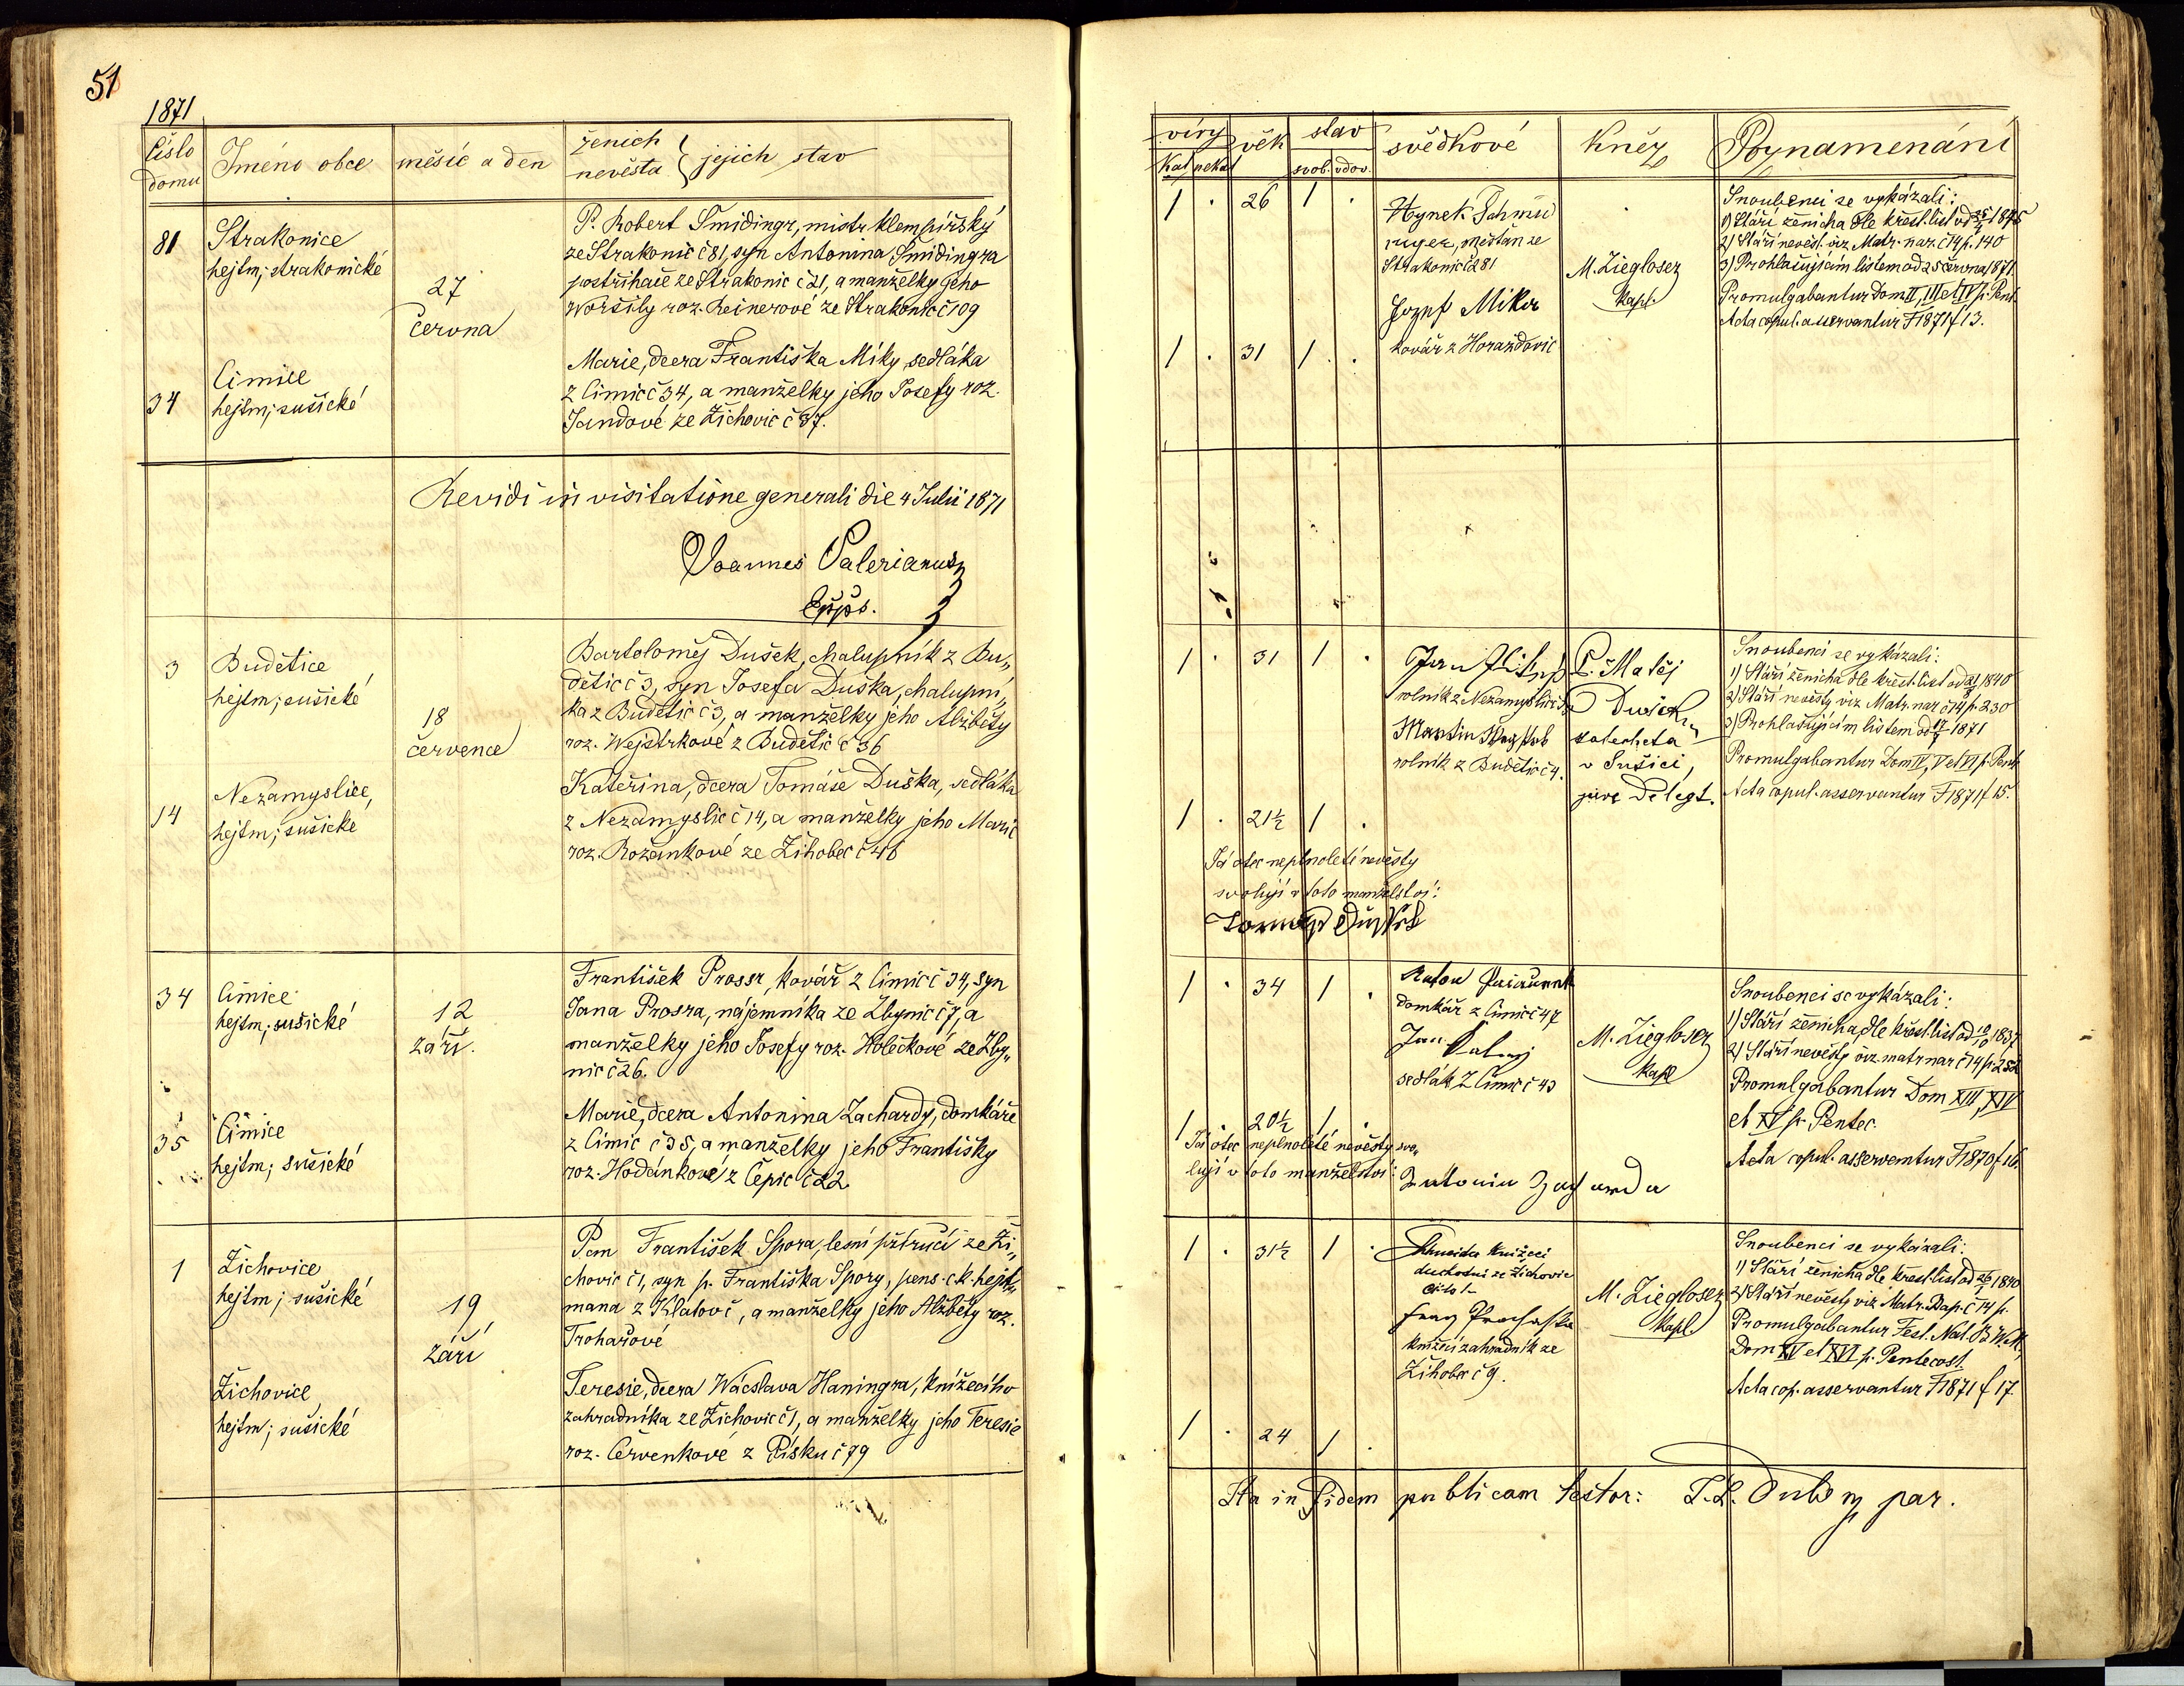 51
1871
číslo domu
Jméno obce
měsíc a den
ženich
nevěsta } jejich stav
81
Strakonice
hejtm; strakonické
27
června
P. Robert Šmidingr, mistr klempířský
ze Strakonic č 81, syn Antonina Šmidingra
postřihače ze Strakonic č 21, a manželky jeho
Woršily roz. Reinerové ze Strakonic č 109
34
Čimice
hejtm; sušické
Marie, dcera Františka Míky, sedláka
z Čimic č 34, a manželky jeho Josefy roz.
Jandové ze Žichovic č 37.
Revidi in visitatione generali die 4 Julii 1871
Joannes Valerianus
Eppus.
3
Budětice
hejtm; sušické
18
července
Bartoloměj Dušek, chalupník z Bu„
dětic č 3, syn Josefa Duška, chalupní„
ka z Budětic č 3, a manželky jeho Alžběty
roz. Wejstrkové z Budětic č 36
14
Nezamyslice,
hejtm; sušické
Kateřina, dcera Tomáše Duška, sedláka
z Nezamyslic č 14, a manželky jeho Marie
roz. Rožánkové ze Žihobec č 46
34
Čimice
hejtm; sušické
12
září.
František Prossr, kovář z Čimic č 34, syn
Jana Prosra, nájemníka ze Zbynic č 7, a
manželky jeho Josefy roz. Holečkové ze Zby„
nic č 26.
35
Čimice
hejtm; sušické
Marie, dcera Antonina Zachardy, domkáře
z Čimic č 35, a manželky jeho Františky
roz. Hodánkové z Čepic č 22
1
Žichovice
hejtm; sušické
19
září
Pan František Spora, lesní příručí ze Ži„
chovic č 1, syn p. Františka Spory, pens. c. k. hejt„
mana z Klatov č , a manželky jeho Alžběty roz.
Trohařové
Žichovice
hejtm; sušické
Teresie, dcera Wácslava Haningra, knížecího
zahradníka ze Žichovic č 1, a manželky jeho Teresie
roz. Červenkové z Písku č 79
víry
kat nekat
věk
stav
svob. vdov.
svědkové
kněz
Poznamenání
1 . 26 1 .
Hynek Schmid
inger, měšťan ze
Strakonic č 281
Jozef Mika
kovář z Horažďovic
M. Zieglosez
kapl.
Snoubenci se vykázali:
1) Stáří ženicha dle křest. list od 1845
2) Stáří nevěst. viz Matr. nar. č 14 p. 140
3) Prohlašujícím listem od 25 června 1871.
Promulgabantur Dom II, III et IV p. Pent.
Acta copul. asservantur F 1871 f 13.
1 . 31 1 .
1 . 31 1 .
Jan
rolník z Nezamyslic č
Martin
rolník z Budětic č 4.
P. Matěj
Dušek
katecheta
v Sušici,
jure Delegt.
Snoubenci se vykázali:
1) Stáří ženicha dle křest. list od 1840
2) Stáří nevěsty viz Matr. nar č 14 p. 230
3) Prohlašujícím listem od 17/7 1871
Promulgabantur Dom IV, V et VI p. Pent.
Acta copul. asservantur F 1871 f 15.
1 . 21½ 1 .
Já otec neplnoleté nevěsty
svoluji v toto manželství:
Tomáš Dušek
1 . 34 1 .
Anton
domkář z Čimic č 47
Jan
sedlák z Čimic č 43
M. Zieglosez
kapl
Snoubenci se vykázali:
1) Stáří ženicha, dle křest. list od 1837
2) Stáří nevěsty viz. matr nar č 14 p 252
Promulgabantur Dom XIII, XIV
et XV p. Pentec.
Acta copul. asservantur F 1870 f 16.
1 . 20½ 1 .
Já otec neplnoleté nevěsty svo„
luji v toto manželství:
Antonin Zacharda
1 . 31½ 1 .
knížecí
duchodní ze Žichovic
čislo 1
Franz Prochaska
knížecí zahradník ze
Žihobec č 9.
M. Zieglosez
kapl.
Snoubenci se vykázali:
1) Stáří ženicha dle křest. list od 1840
2) Stáří nevěsty viz Matr. Bap. č 14 p.
Promulgabantur Fest. Nat. B. V. M.,
Dom XV et XVI p. Pentecost.
Acta cop. asservantur F 1871 f 17.
1 . 24 1 .
Ita in fidem publicam testor: par.